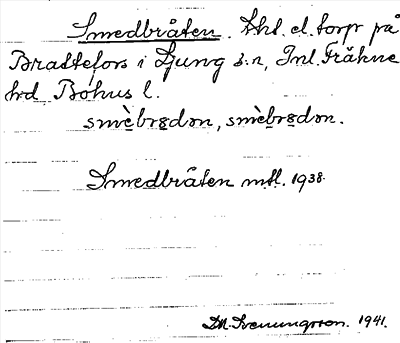 Smedbråten. Lht. el. torp på
Brattefors i Ljung s:n, Inl. Fräkne
hd, Bohus l.
smèbrødən, smèbrødən.
Smedbråten mtl. 1938.
D.A. Svenungsson. 1941.